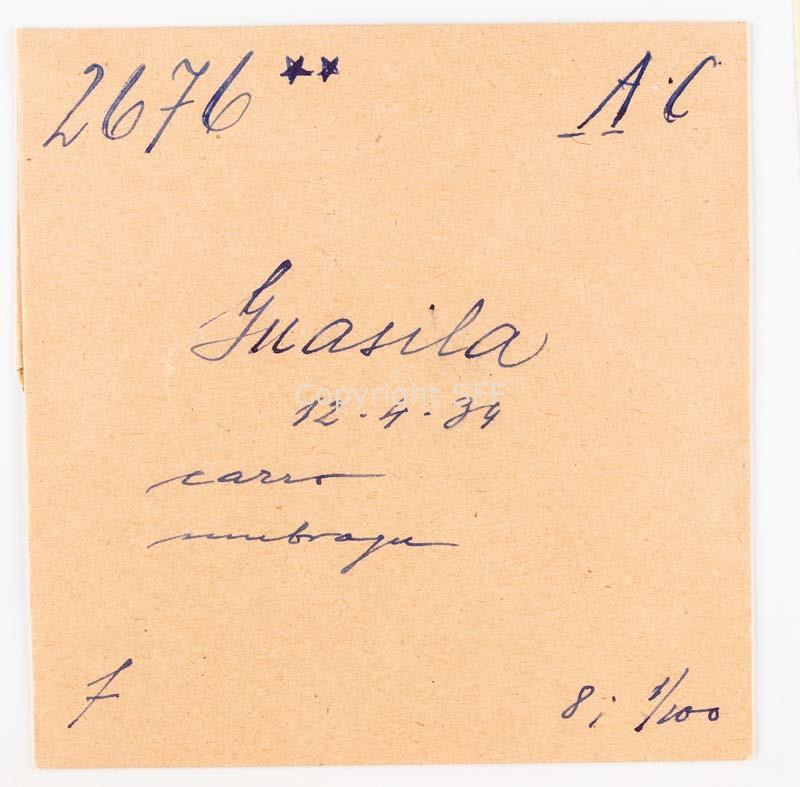 2676 ** A.C
Guasila
Copyright SFF
12.4.34
carro
umbragu
7 8; 1/100